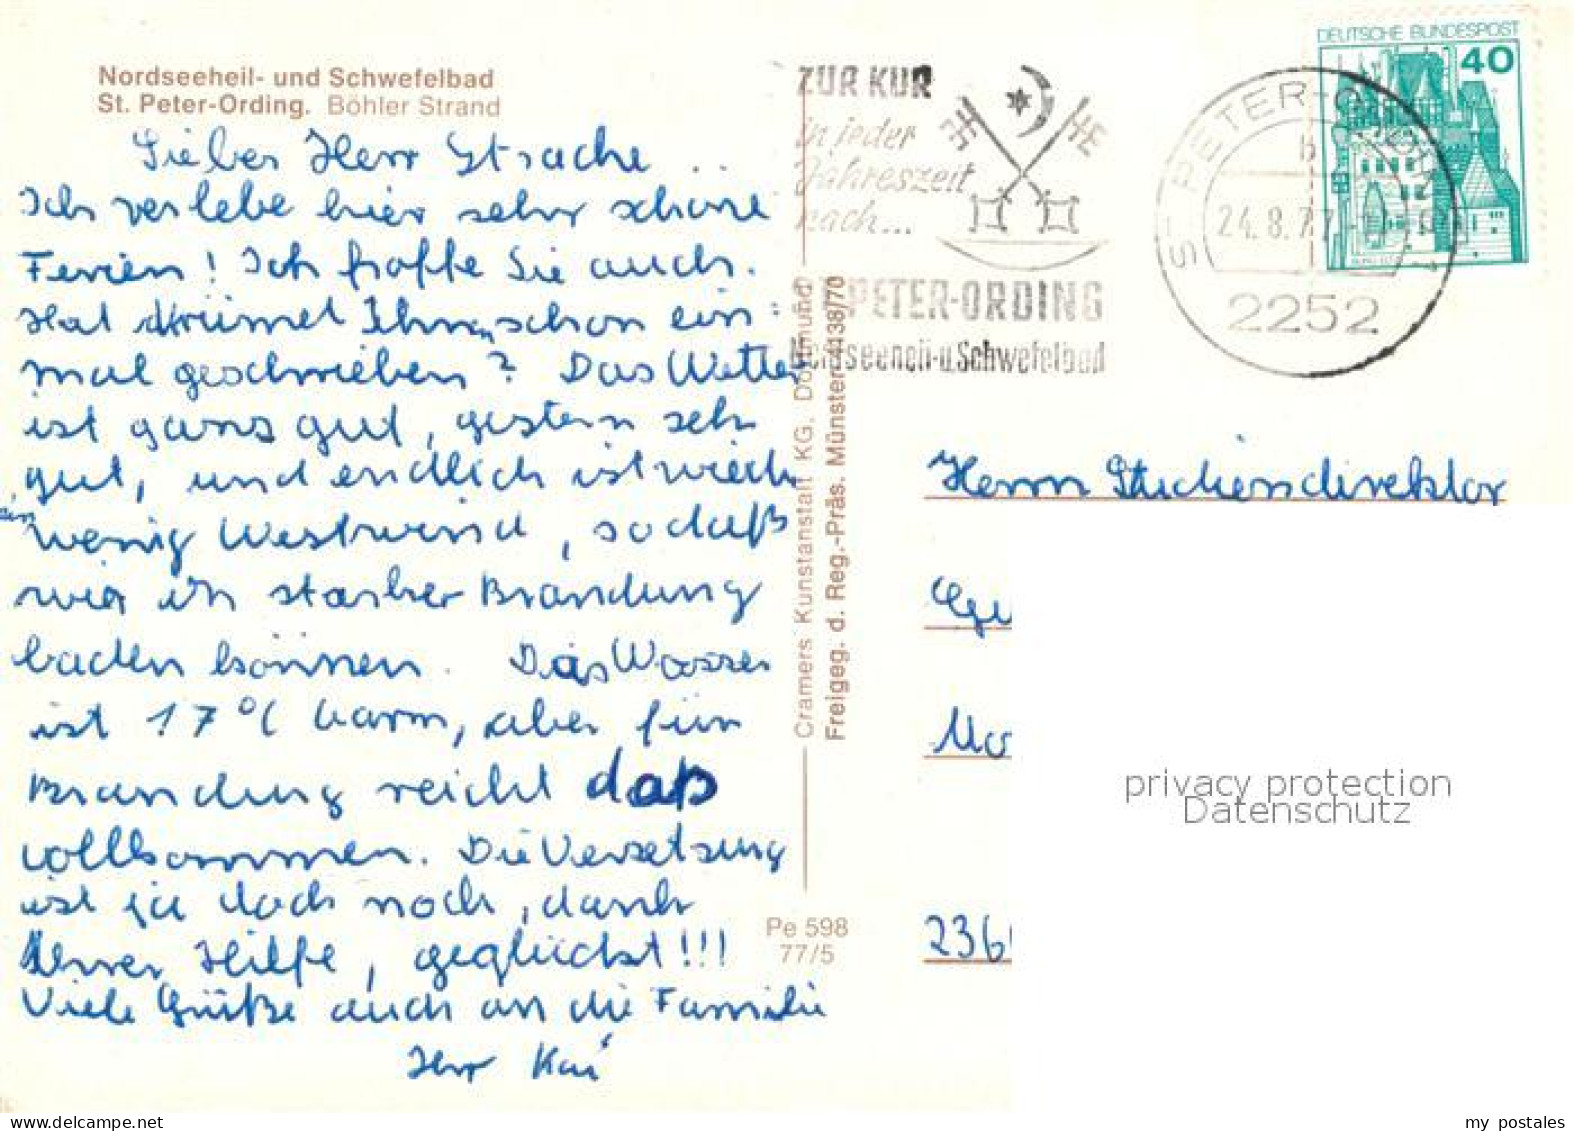 Nordseeheil- und Schwefelbad
St. Peter-Ording. Böhler Strand
Lieber Herr Strache
Ich verlebe hier sehr schöne
Ferien! Ich hoffe Sie auch.
Hat Ihnen schon ein-
mal geschrieben? Das Wetter
ist ganz gut, gestern sehr
gut, und endlich ist wieder
ein wenig Westwind, so daß
wir in starker Brandung
baden können. Das Wasser
ist 17°C warm, aber für
Brandung reicht daß
vollkommen. Die Versetzung
ist ja doch noch, dank
Ihrer Hilfe, geglückt!!!
Viele Grüße auch an die Familie
Ihr Kai
Cramers Kunstanstalt KG, Dortmund
Freigeg. d. Reg.-Präs. Münster 4138/70
Pe 598
77/5
ZUR KUR
in jeder
Jahreszeit
nach...
PETER-ORDING
Nordseeheil-u.Schwefelbad
ST. PETER-ORDING
b
24.8.77
2252
DEUTSCHE BUNDESPOST
40
Herrn Studiendirektor
Ge
Mo
236
privacy protection
Datenschutz
my postales